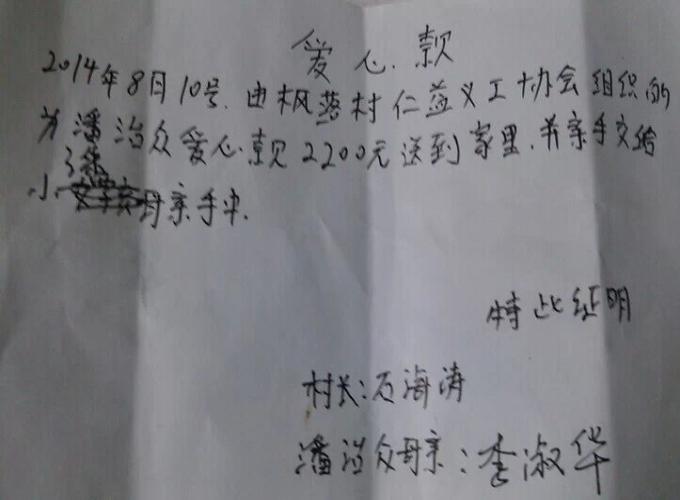 爱心款
2014年8月10号.由枫落村仁益义工协会组织的
为潘治众爱心款2200元送到家里.并亲手交给
小涵母亲手中.
特此证明
村长:石海涛
潘治众母亲:李淑华